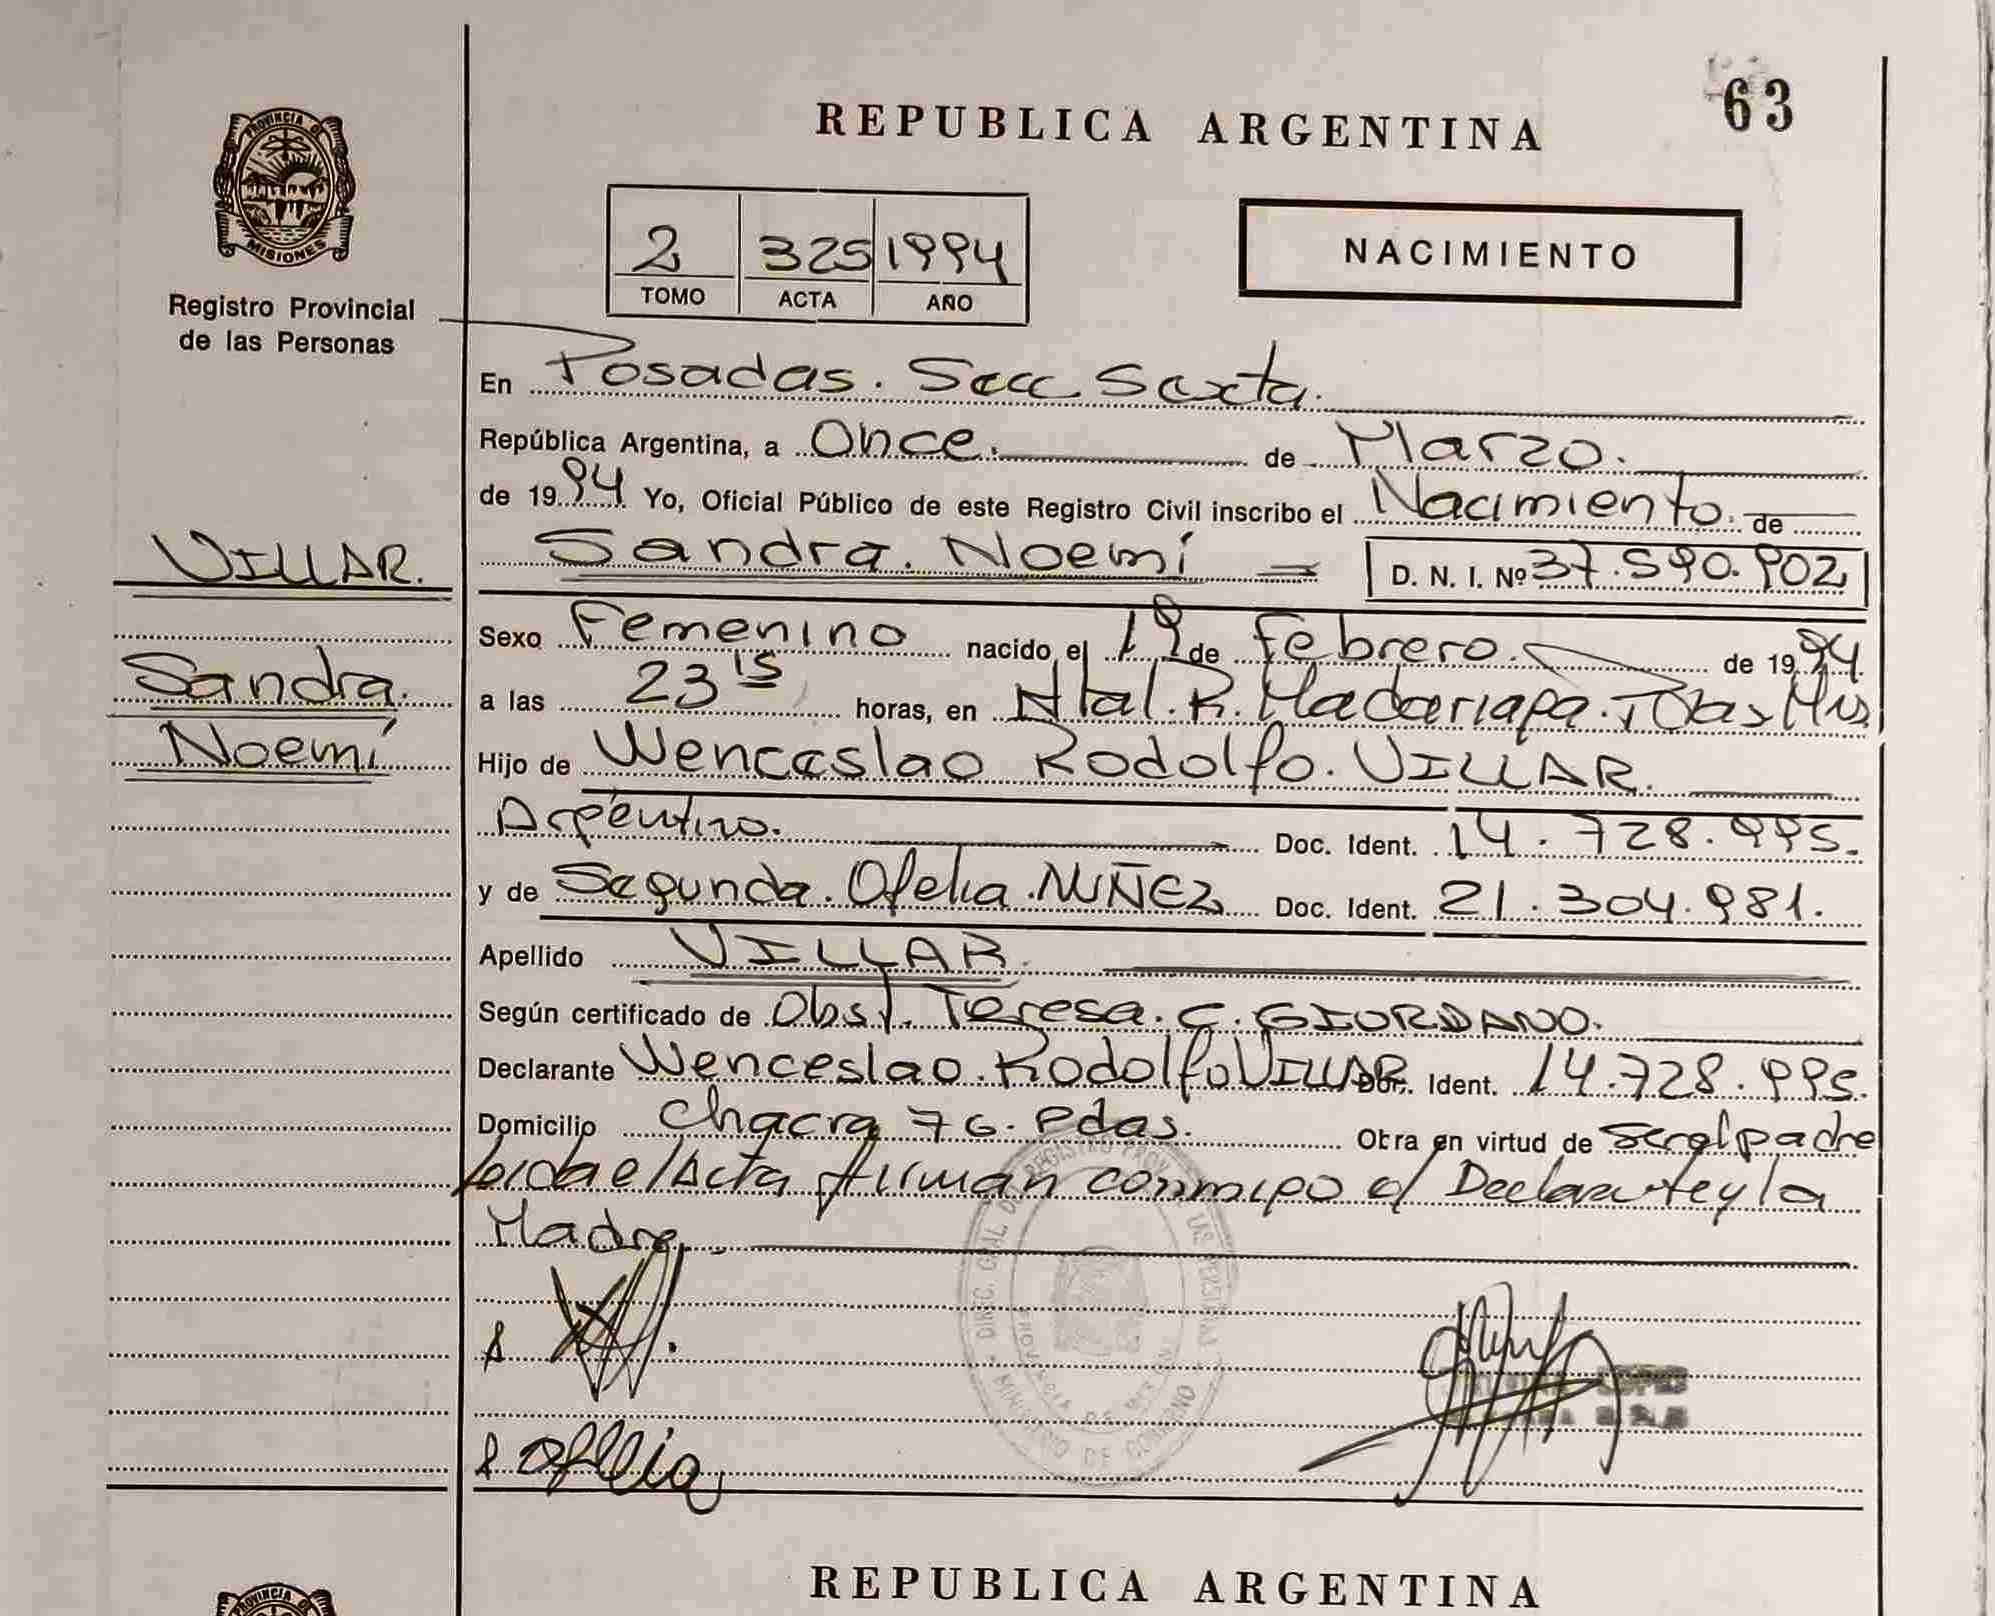 63
REPUBLICA ARGENTINA
PROVINCIA DE
MISIONES
Registro Provincial
de las Personas
2 325 1994
TOMO ACTA AÑO
NACIMIENTO
En Posadas. Secc Sexta.
República Argentina, a Once. de Marzo.
de 1994 Yo, Oficial Público de este Registro Civil inscribo el Nacimiento. de
Sandra. Noemí D. N. I. Nº 37.590.902
VILLAR.
Sandra.
Noemí
Sexo Femenino nacido el 19 de Febrero. de 1994.
a las 23 15 horas, en Htal. R. Madariaga. Pdas, Mns
Hijo de Wenceslao Rodolfo. VILLAR.
Argentino. Doc. Ident. 14.728.995.
y de Segunda. Ofelia. NUÑEZ Doc. Ident. 21.304.981.
Apellido VILLAR.
Según certificado de Obst. Teresa. C. GIORDANO.
Declarante Wenceslao. Rodolfo VILLAR Doc. Ident. 14.728.995.
Domicilio Chacra 76. Pdas. Obra en virtud de Ser el padre
leida el Acta firman conmigo el Declarante y la
Madre.
DIREC. GRAL. DE REGISTRO PROV. DE LAS PERSONAS
PROVINCIA DE MISIONES
MINISTERIO DE GOBIERNO
Ofelia
REPUBLICA ARGENTINA
PROVINCIA DE